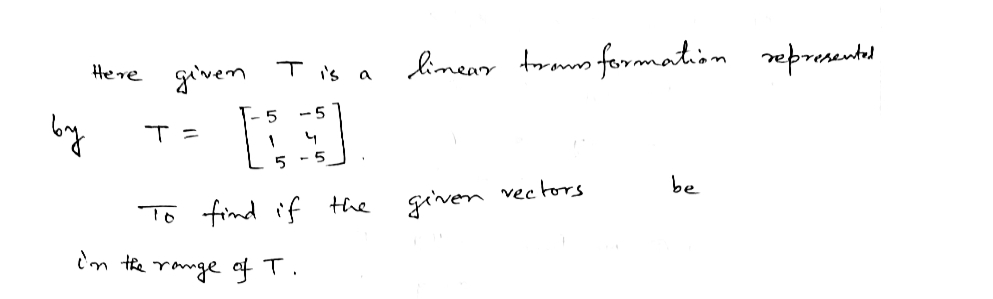 Here given T is a linear transformation represented
by T = [-5 -5
1 4
5 -5].
To find if the given vectors be
in the range of T.